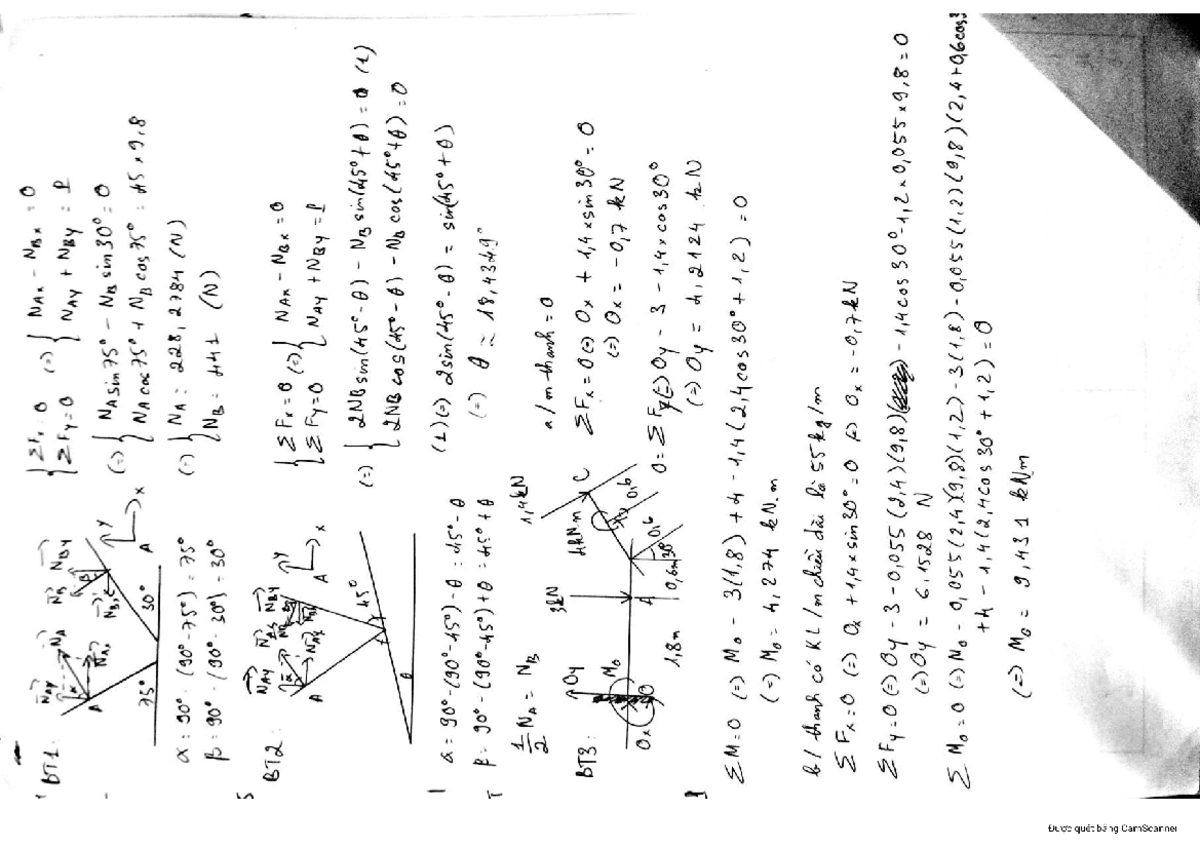 BT1:
N_Ay N_A N_B N_By
N_Ax N_Bx
A B y x
75° 30° A
α = 90° - (90° - 75°) = 75°
β = 90° - (90° - 30°) = 30°
{ ΣFx = 0
ΣFy = 0 (=) { N_Ax - N_Bx = 0
N_Ay + N_By = P
(=) { N_A sin75° - N_B sin30° = 0
N_A cos75° + N_B cos75° = 45 x 9,8
(=) { N_A = 228,2784 (N)
N_B = 441 (N)
BT2:
N_Ay N_A N_B N_By
N_Ax N_Bx
A y x
45°
θ
α = 90° - (90° - 45°) - θ = 45° - θ
β = 90° - (90° - 45°) + θ = 45° + θ
1/2 N_A = N_B
{ ΣFx = 0
ΣFy = 0 (=) { N_Ax - N_Bx = 0
N_Ay + N_By = P
(=) { 2NB sin(45° - θ) - N_B sin(45° + θ) = 0 (1)
2NB cos(45° - θ) - N_B cos(45° + θ) = 0
(1) (=) 2sin(45° - θ) = sin(45° + θ)
(=) θ ≃ 18,4349°
BT3:
Oy 3kN 4kN.m 1,4kN
Mo C
Ox O A 0,6
1,8m 0,6m 30° 0,6
a/ m thanh = 0
ΣFx = 0 (=) Ox + 1,4 x sin30° = 0
(=) Ox = -0,7 kN
0 = ΣFy (=) Oy - 3 - 1,4 x cos30°
(=) Oy = 4,2124 kN
ΣM = 0 (=) Mo - 3(1,8) + 4 - 1,4(2,4cos30° + 1,2) = 0
(=) Mo = 4,274 kN.m
b/ thanh có KL / m chiều dài là 55kg/m
ΣFx = 0 (=) Ox + 1,4 x sin30° = 0 (=) Ox = -0,7kN
ΣFy = 0 (=) Oy - 3 - 0,055(2,4)(9,8) - 1,4cos30° - 1,2 x 0,055 x 9,8 = 0
(=) Oy = 6,1528 N
ΣMo = 0 (=) Mo - 0,055(2,4)(9,8)(1,2) - 3(1,8) - 0,055(1,2)(9,8)(2,4 + 0,6cos3
+4 - 1,4(2,4cos30° + 1,2) = 0
(=) Mo = 9,431 kN.m
Được quét bằng CamScanner